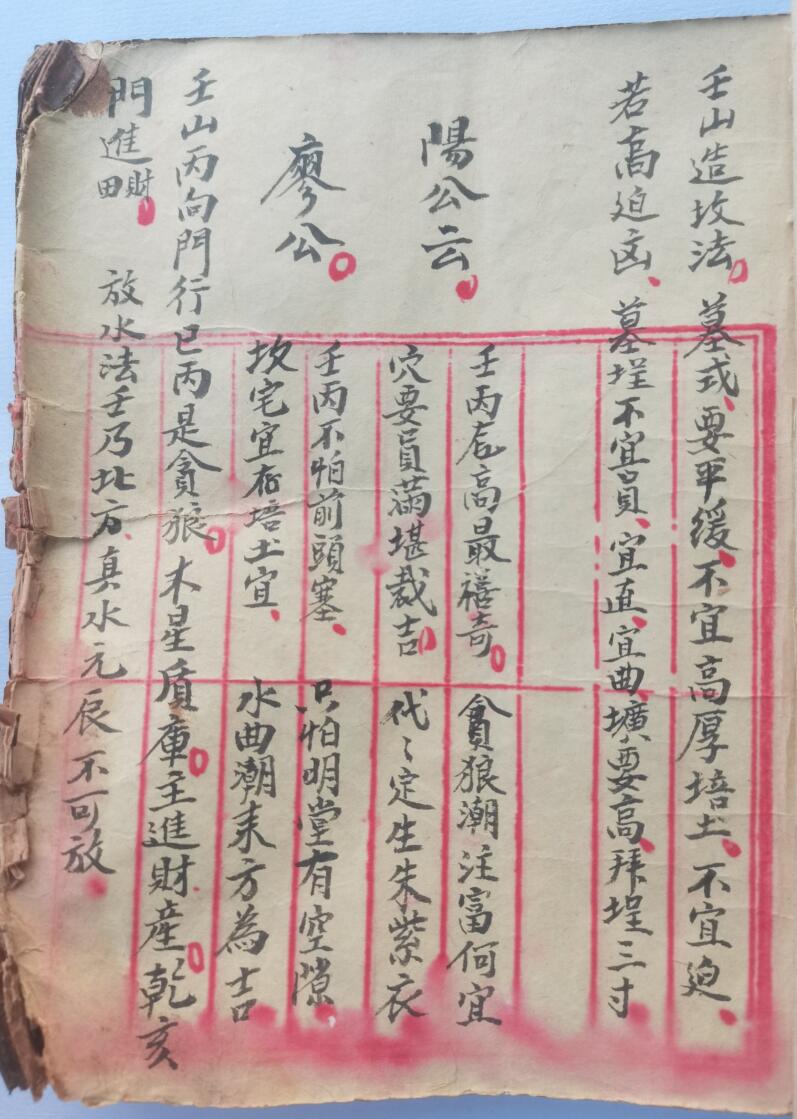 壬山造坟法墓式要平緩不宜高厚培土不宜迫
若高迫凶墓埕不宜員宜直宜曲壙要高拜埕三寸
陽公云
壬丙龙高最禧奇貪狼潮注富何宜
穴要員滿堪裁吉代〻定生朱紫衣
廖公
壬丙不怕前頭塞只怕明堂有空隙
坟宅宜存培土宜水曲潮来方為吉
壬山丙向門行巳丙是貪狼木星質庫主進財産乾亥
門進田財放水法壬乃北方真水元辰不可放